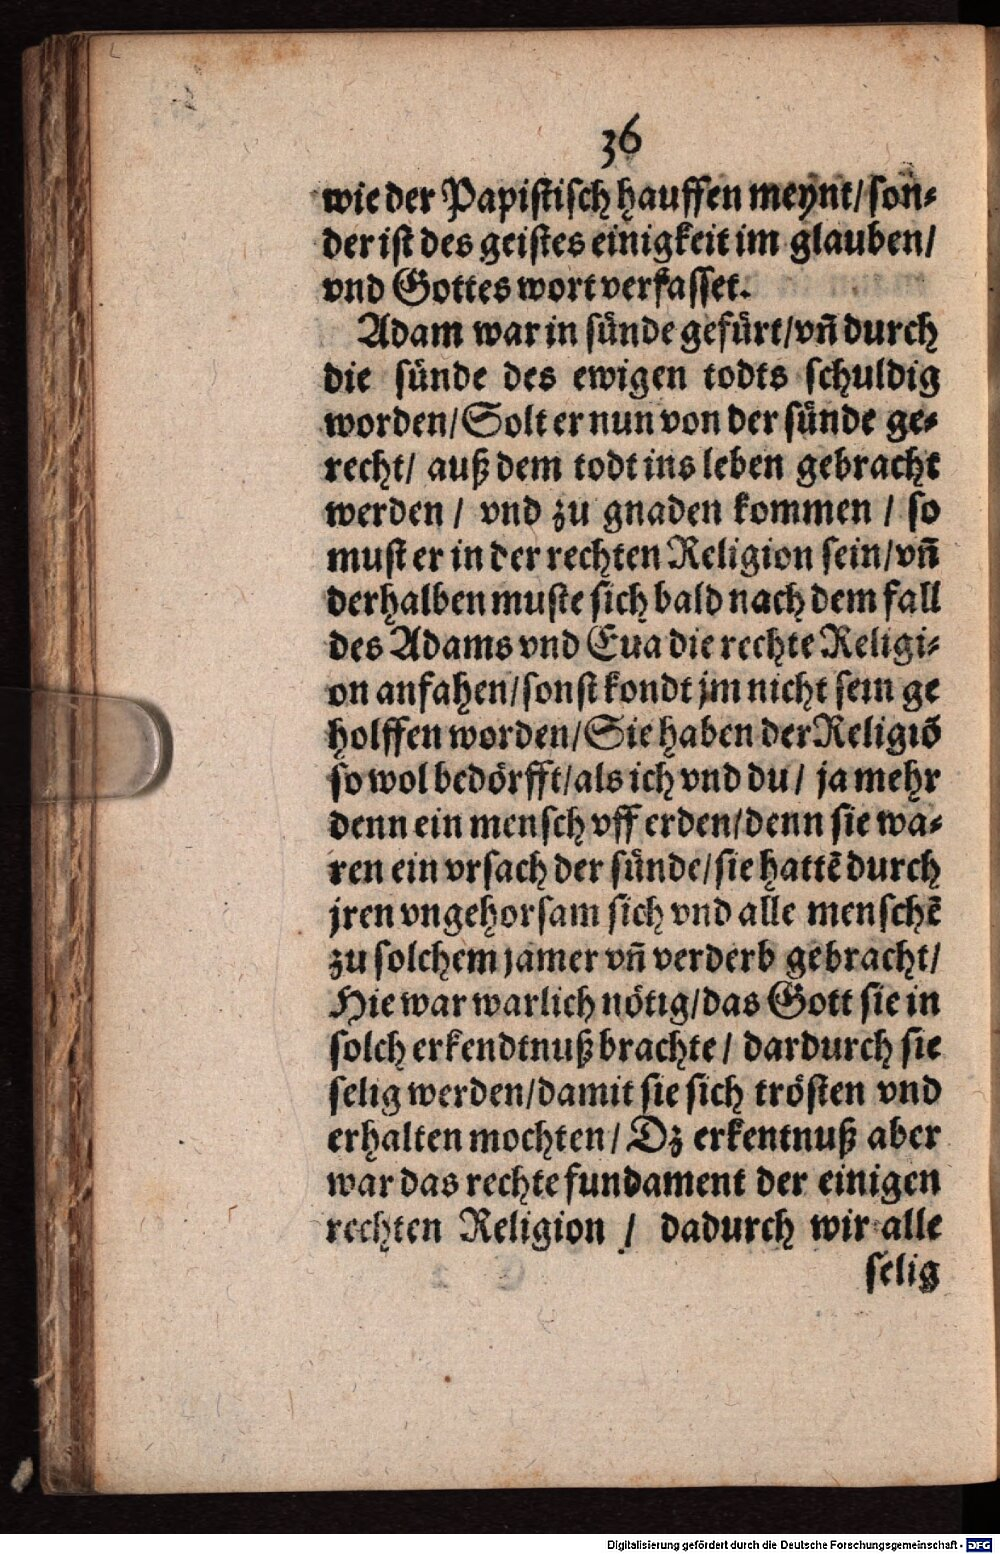 36
wie der Papistisch hauffen meynt/ son⸗
der ist des geistes einigkeit im glauben/
vnd Gottes wort verfasset.
Adam war in sünde gefürt/ vñ durch
die sünde des ewigen todts schuldig
worden/ Solt er nun von der sünde ge⸗
recht/ auß dem todt ins leben gebracht
werden / vnd zu gnaden kommen / so
must er in der rechten Religion sein/ vñ
derhalben muste sich bald nach dem fall
des Adams vnd Eua die rechte Religi⸗
on anfahen/ sonst kondt jm nicht sein ge
holffen worden/ Sie haben der Religiõ
so wol bedörfft/ als ich vnd du/ ja mehr
denn ein mensch vff erden/ denn sie wa⸗
ren ein vrsach der sünde/ sie hattẽ durch
jren vngehorsam sich vnd alle menschẽ
zu solchem jamer vñ verderb gebracht/
Hie war warlich nötig/ das Gott sie in
solch erkendtnuß brachte/ dardurch sie
selig werden/ damit sie sich trösten vnd
erhalten mochten/ Dz erkentnuß aber
war das rechte fundament der einigen
rechten Religion / dadurch wir alle
selig
Digitalisierung gefördert durch die Deutsche Forschungsgemeinschaft - DFG